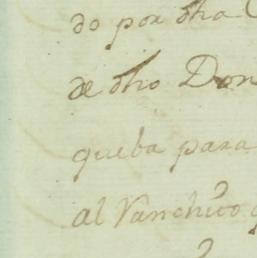 do por dha
de dho Don
queba para
al Vanchito